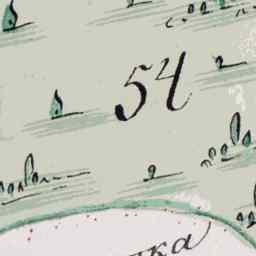 54
ка